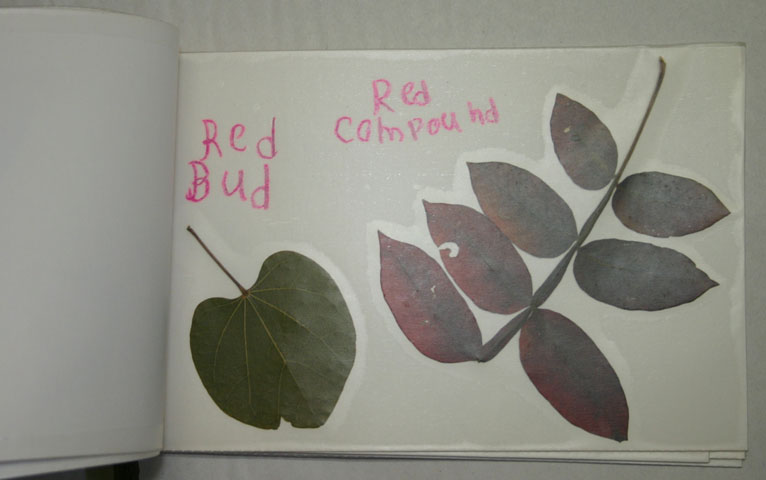 Red
Bud
Red
Compound